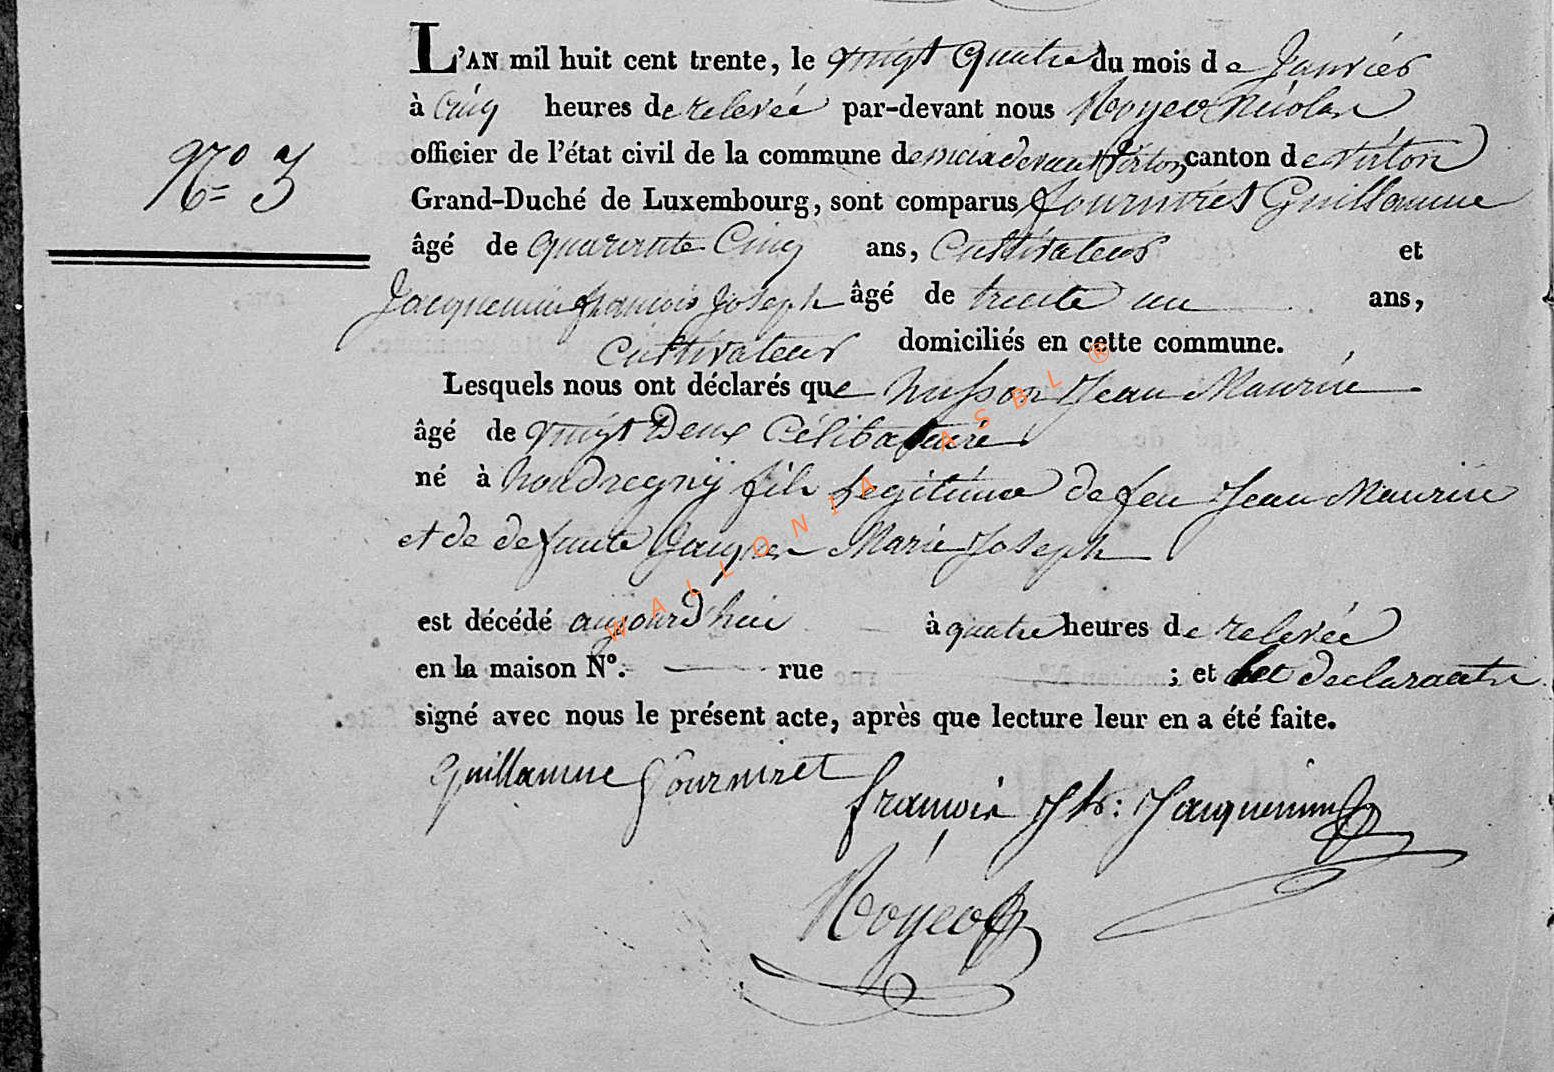 L'AN mil huit cent trente, le vingt quatre du mois de Janvier
à Cinq heures de relevée par-devant nous Noyer Nicolas
officier de l'état civil de la commune de meix devant virton, canton de virton
N° 3
Grand-Duché de Luxembourg, sont comparus fourniret Guillaume
âgé de quarente Cinq ans, Cultivateur et
Jacquemin francois Joseph âgé de trente un ans,
Cultivateur domiciliés en cette commune.
Lesquels nous ont déclarés que husson Jean Maurice
âgé de vingt Deux Célibataire
né à houdregny fils legitime de feu Jean Maurice
et de defunte Jaques Marie Joseph
est décédé aujourd'hui à quatre heures de relevée
en la maison N°. rue ; et les declarants
signé avec nous le présent acte, après que lecture leur en a été faite.
Guillaume fourniret
françois Jh: Jacquemin
WALLONIA ASBL ®